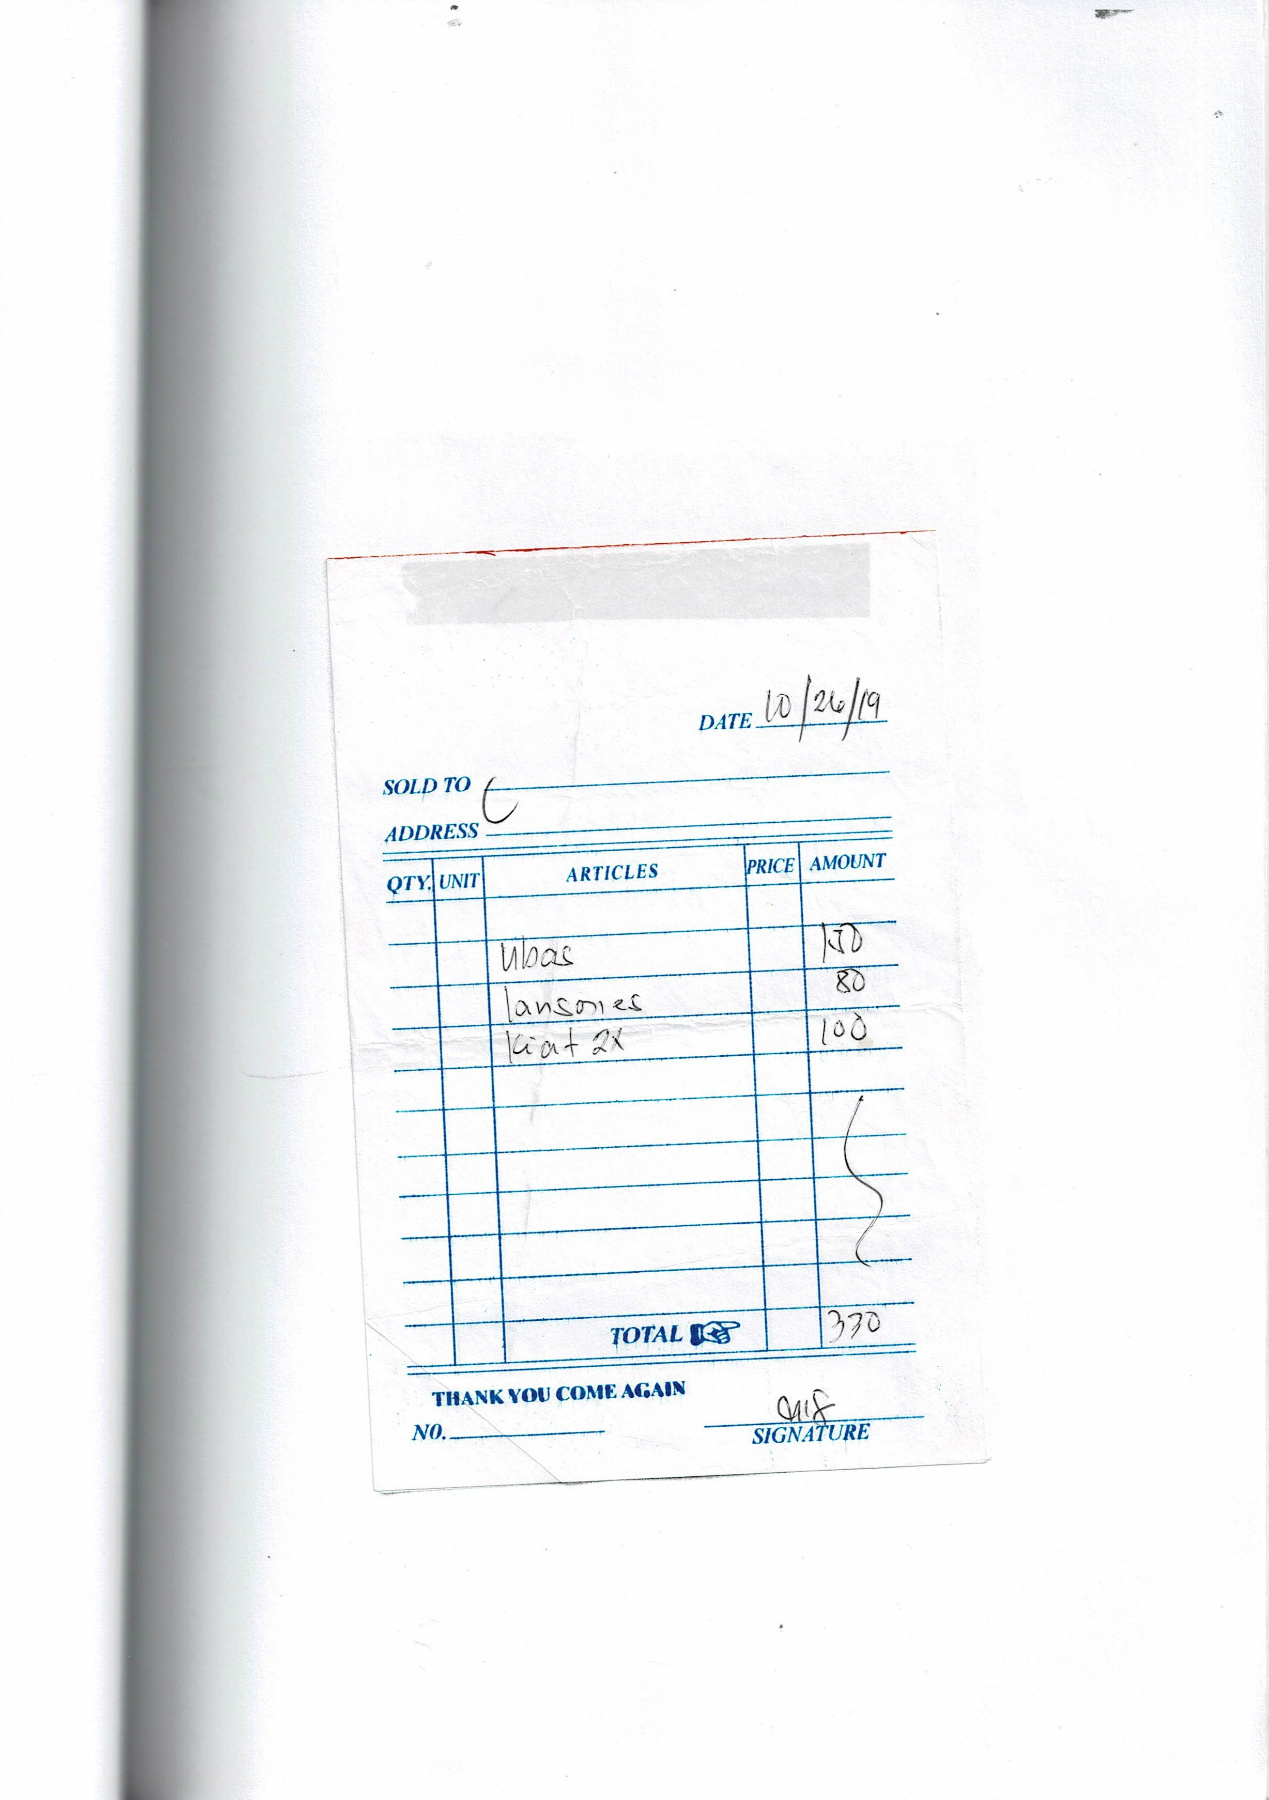 DATE 10/26/19
SOLD TO
ADDRESS
QTY. UNIT ARTICLES PRICE AMOUNT
Ubas 150
lansones 80
kiat 2x 100
TOTAL 330
THANK YOU COME AGAIN
NO.
SIGNATURE